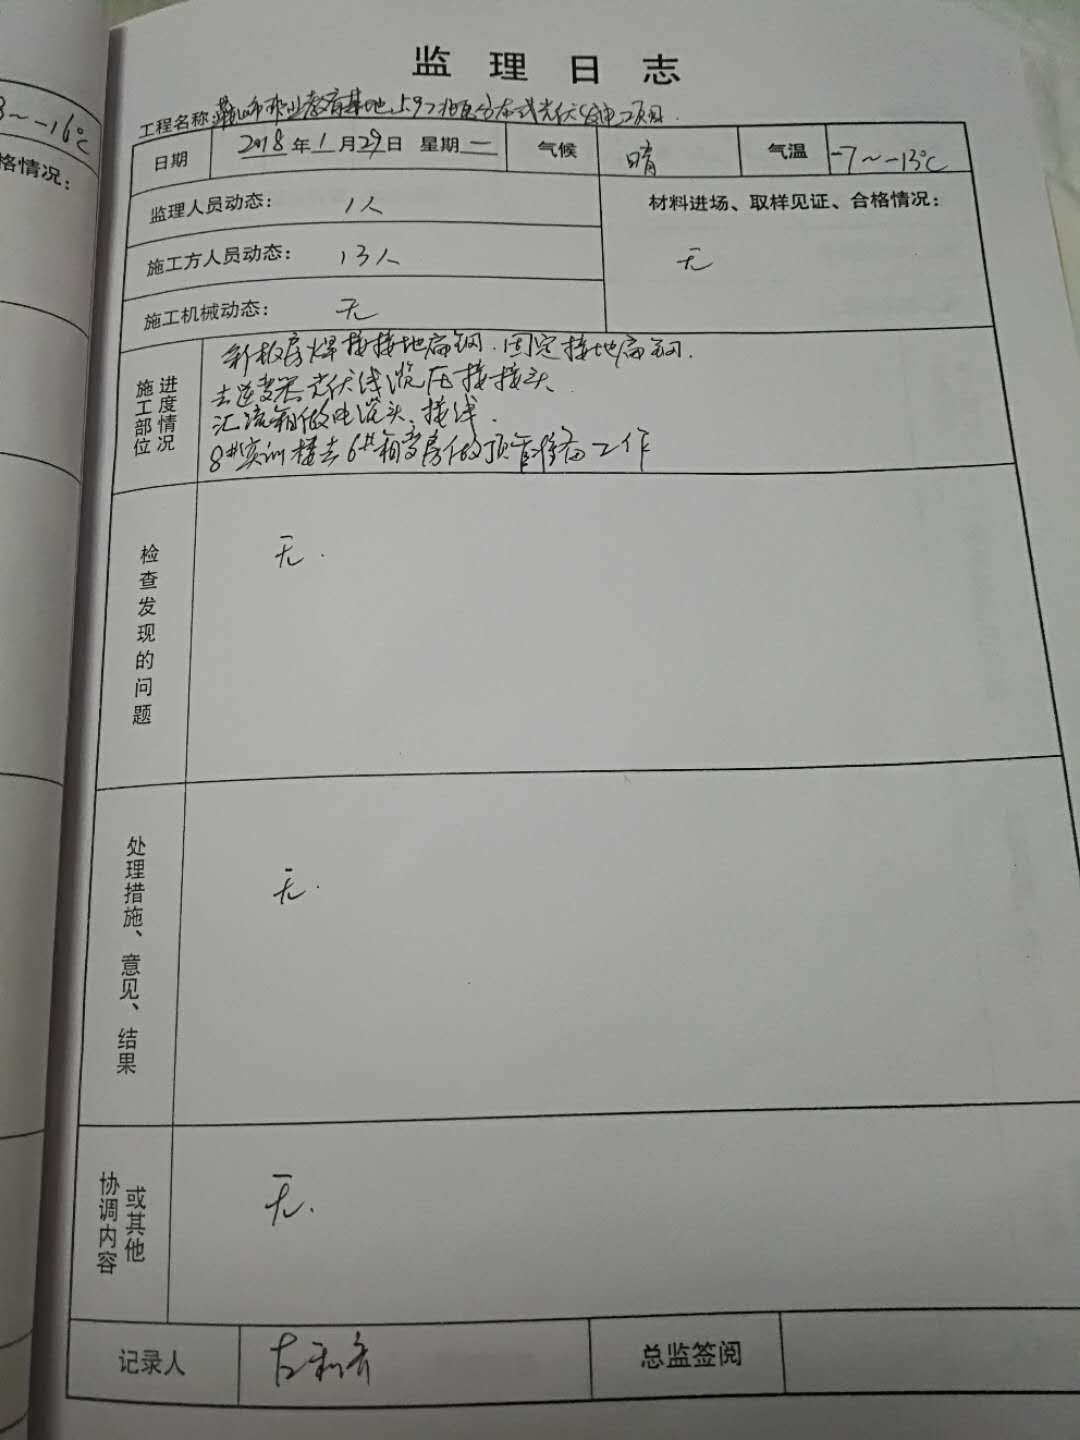 监理日志
工程名称 鞍山市职业教育基地5.97兆瓦分布式光伏发电项目.
日期 2018年1月29日 星期一 气候 晴 气温 -7~-13℃
监理人员动态: 1人
材料进场、取样见证、合格情况:
施工方人员动态: 13人
无
施工机械动态: 无
施工部位 进度情况
新板房焊接接地扁钢.固定接地扁钢.
去逆变器光伏线缆压接接头.
汇流箱做电缆头、接线.
8#实训楼去6#箱变房做顶管准备工作
检查发现的问题
无.
处理措施、意见、结果
无.
协调内容 或其他
无.
记录人
总监签阅
3~-16℃
格情况: